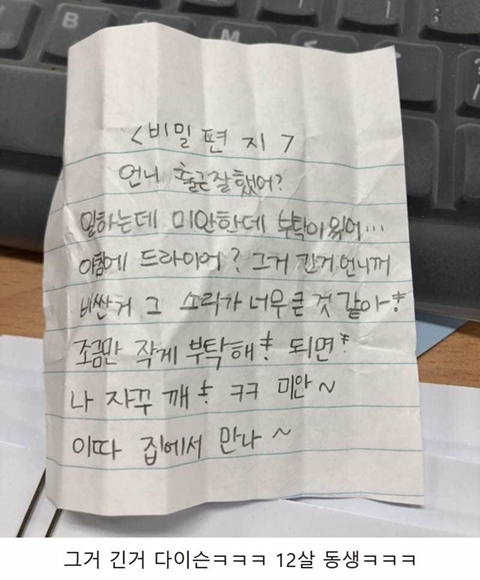 <비밀 편지>
언니 출근 잘했어?
일하는데 미안한데 부탁이 있어...
아침에 드라이어? 그거 긴거 언니꺼
비싼거 그 소리가 너무 큰 것 같아!
조금만 작게 부탁해! 되면!
나 자꾸 깨! ㅋㅋ 미안~
이따 집에서 만나~
그거 긴거 다이슨ㅋㅋㅋ 12살 동생ㅋㅋㅋ